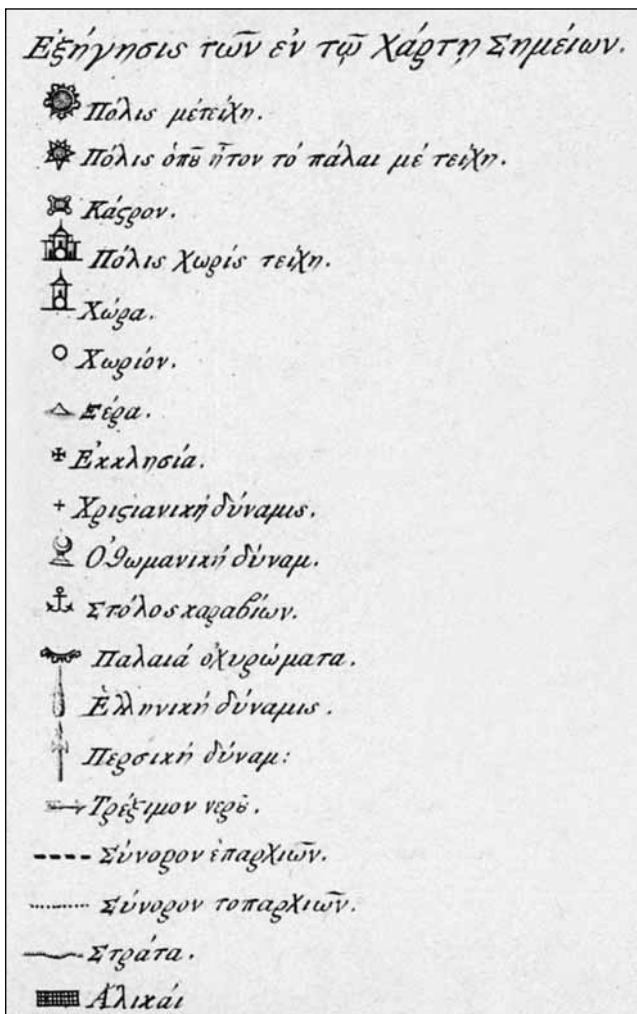 Ἐξήγησις τῶν ἐν τῷ Χάρτῃ Σημείων.
Πόλις μέτείχη.
Πόλις ὁπȣ̃ ἦτον τό πάλαι μέ τείχη.
Κάϛρον.
Πόλις Χωρίς τείχη.
Χώρα.
Χωρίον.
Ξέρα.
Ἐκκλησία.
Χριϛιανική δύναμις.
Ὀθωμανική δύναμ.
Στόλος καραβίων.
Παλαιά ὀχυρώματα.
Ἑλληνική δύναμις.
Περσική δύναμ:
Τρέξιμον νερȣ̃.
Σύνορον ἐπαρχιῶν.
Σύνορον τοπαρχιῶν.
Στράτα.
Ἁλικάι